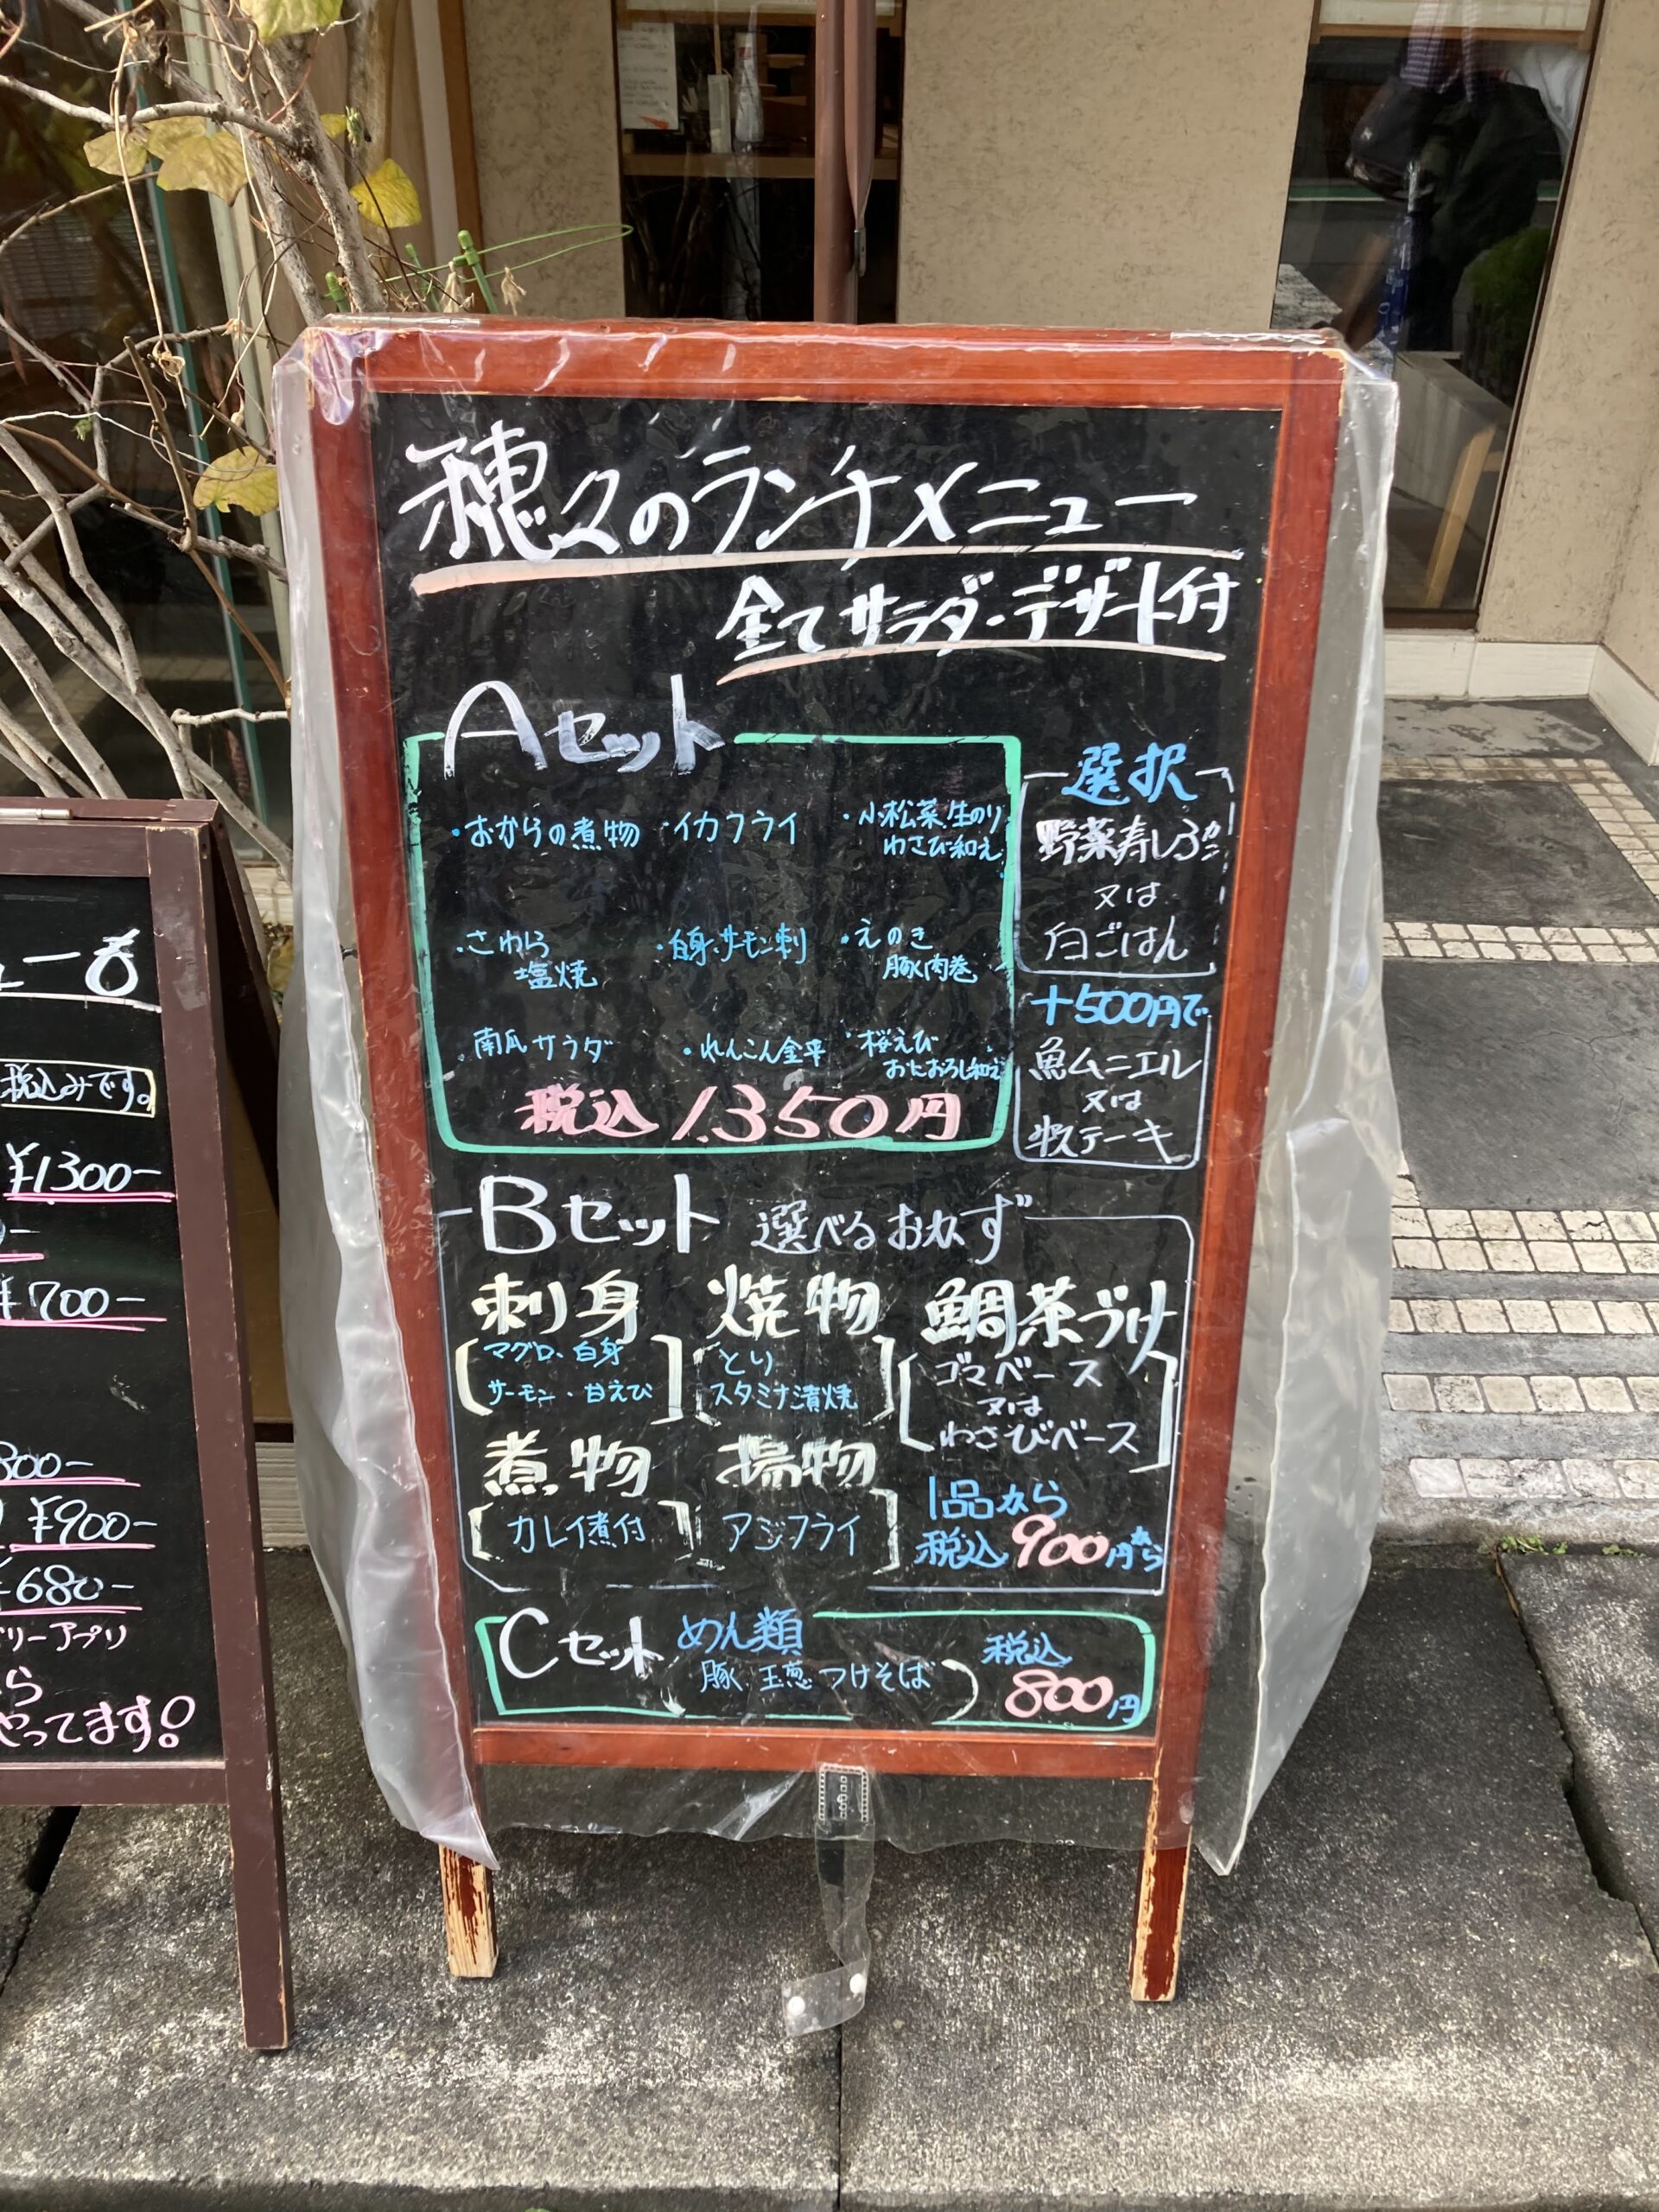 穂々のランチメニュー
全てサラダ・デザート付
Aセット
・おからの煮物
・イカフライ
・小松菜、生のり
わさび和え
・さわら
塩焼
・白身、サーモン刺
・えのき
豚肉巻
・南瓜サラダ
・れんこん金平
・桜えび
おにおろし和え
税込1,350円
選択
野菜寿し
又は
白ごはん
+500円で
魚ムニエル
又は
牧テーキ
Bセット 選べるおかず
刺身
マグロ、白身
サーモン・甘えび
焼物
とり
スタミナ漬焼
鯛茶づけ
ゴマベース
又は
わさびベース
煮物
カレイ煮付
揚物
アジフライ
1品から
税込900円から
Cセット めん類
豚、玉葱つけそば
税込
800円
ュー
税込みです。
¥1300-
¥700-
800-
¥900-
¥680-
リーアプリ
ら
やってます!